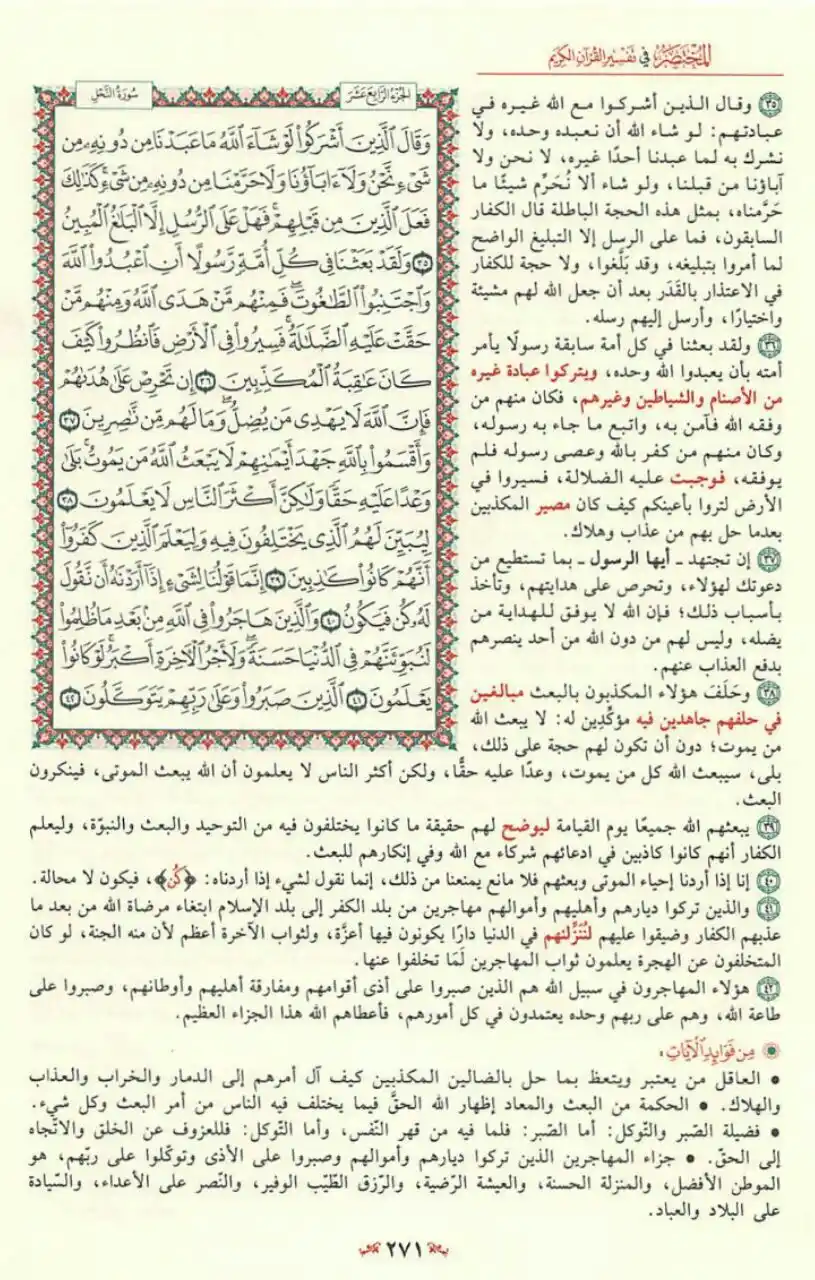 المختصر في تفسير القرآن الكريم
الجزء الرابع عشر
سورة النحل
وَقَالَ ٱلَّذِينَ أَشْرَكُوا۟ لَوْ شَآءَ ٱللَّهُ مَا عَبَدْنَا مِن دُونِهِۦ مِن
شَىْءٍ نَّحْنُ وَلَآ ءَابَآؤُنَا وَلَا حَرَّمْنَا مِن دُونِهِۦ مِن شَىْءٍ ۚ كَذَٰلِكَ
فَعَلَ ٱلَّذِينَ مِن قَبْلِهِمْ ۚ فَهَلْ عَلَى ٱلرُّسُلِ إِلَّا ٱلْبَلَٰغُ ٱلْمُبِينُ
٣٥ وَلَقَدْ بَعَثْنَا فِى كُلِّ أُمَّةٍ رَّسُولًا أَنِ ٱعْبُدُوا۟ ٱللَّهَ
وَٱجْتَنِبُوا۟ ٱلطَّٰغُوتَ ۖ فَمِنْهُم مَّنْ هَدَى ٱللَّهُ وَمِنْهُم مَّنْ
حَقَّتْ عَلَيْهِ ٱلضَّلَٰلَةُ ۚ فَسِيرُوا۟ فِى ٱلْأَرْضِ فَٱنظُرُوا۟ كَيْفَ
كَانَ عَٰقِبَةُ ٱلْمُكَذِّبِينَ ٣٦ إِن تَحْرِصْ عَلَىٰ هُدَىٰهُمْ
فَإِنَّ ٱللَّهَ لَا يَهْدِى مَن يُضِلُّ ۖ وَمَا لَهُم مِّن نَّٰصِرِينَ ٣٧
وَأَقْسَمُوا۟ بِٱللَّهِ جَهْدَ أَيْمَٰنِهِمْ ۙ لَا يَبْعَثُ ٱللَّهُ مَن يَمُوتُ ۚ بَلَىٰ
وَعْدًا عَلَيْهِ حَقًّا وَلَٰكِنَّ أَكْثَرَ ٱلنَّاسِ لَا يَعْلَمُونَ ٣٨
لِيُبَيِّنَ لَهُمُ ٱلَّذِى يَخْتَلِفُونَ فِيهِ وَلِيَعْلَمَ ٱلَّذِينَ كَفَرُوٓا۟
أَنَّهُمْ كَانُوا۟ كَٰذِبِينَ ٣٩ إِنَّمَا قَوْلُنَا لِشَىْءٍ إِذَآ أَرَدْنَٰهُ أَن نَّقُولَ
لَهُۥ كُن فَيَكُونُ ٤٠ وَٱلَّذِينَ هَاجَرُوا۟ فِى ٱللَّهِ مِنۢ بَعْدِ مَا ظُلِمُوا۟
لَنُبَوِّئَنَّهُمْ فِى ٱلدُّنْيَا حَسَنَةً ۖ وَلَأَجْرُ ٱلْءَاخِرَةِ أَكْبَرُ ۚ لَوْ كَانُوا۟
يَعْلَمُونَ ٤١ ٱلَّذِينَ صَبَرُوا۟ وَعَلَىٰ رَبِّهِمْ يَتَوَكَّلُونَ ٤٢
٣٥ وقال الذين أشركوا مع الله غيره في
عبادتهم: لو شاء الله أن نعبده وحده، ولا
نشرك به لما عبدنا أحدًا غيره، لا نحن ولا
آباؤنا من قبلنا، ولو شاء ألا نُحَرِّم شيئًا ما
حَرَّمناه، بمثل هذه الحجة الباطلة قال الكفار
السابقون، فما على الرسل إلا التبليغ الواضح
لما أمروا بتبليغه، وقد بَلَّغوا، ولا حجة للكفار
في الاعتذار بالقَدَر بعد أن جعل الله لهم مشيئة
واختيارًا، وأرسل إليهم رسله.
٣٦ ولقد بعثنا في كل أمة سابقة رسولًا يأمر
أمته بأن يعبدوا الله وحده، ويتركوا عبادة غيره
من الأصنام والشياطين وغيرهم، فكان منهم من
وفقه الله فآمن به، واتبع ما جاء به رسوله،
وكان منهم من كفر بالله وعصى رسوله فلم
يوفقه، فوجبت عليه الضلالة، فسيروا في
الأرض لتروا بأعينكم كيف كان مصير المكذبين
بعدما حل بهم من عذاب وهلاك.
٣٧ إن تجتهد ـ أيها الرسول ـ بما تستطيع من
دعوتك لهؤلاء، وتحرص على هدايتهم، وتأخذ
بأسباب ذلك؛ فإن الله لا يوفق للهداية من
يضله، وليس لهم من دون الله من أحد ينصرهم
بدفع العذاب عنهم.
٣٨ وحَلَفَ هؤلاء المكذبون بالبعث مبالغين
في حلفهم جاهدين فيه مؤكِّدين له: لا يبعث الله
من يموت؛ دون أن تكون لهم حجة على ذلك،
بلى، سيبعث الله كل من يموت، وعدًا عليه حقًّا، ولكن أكثر الناس لا يعلمون أن الله يبعث الموتى، فينكرون
البعث.
٣٩ يبعثهم الله جميعًا يوم القيامة ليوضح لهم حقيقة ما كانوا يختلفون فيه من التوحيد والبعث والنبوّة، وليعلم
الكفار أنهم كانوا كاذبين في ادعائهم شركاء مع الله وفي إنكارهم للبعث.
٤٠ إنا إذا أردنا إحياء الموتى وبعثهم فلا مانع يمنعنا من ذلك، إنما نقول لشيء إذا أردناه: ﴿كُن﴾، فيكون لا محالة.
٤١ والذين تركوا ديارهم وأهليهم وأموالهم مهاجرين من بلد الكفر إلى بلد الإسلام ابتغاء مرضاة الله من بعد ما
عذبهم الكفار وضيقوا عليهم لنُنَزِّلنهم في الدنيا دارًا يكونون فيها أعزَّة، ولثواب الآخرة أعظم لأن منه الجنة، لو كان
المتخلفون عن الهجرة يعلمون ثواب المهاجرين لَمَا تخلفوا عنها.
٤٢ هؤلاء المهاجرون في سبيل الله هم الذين صبروا على أذى أقوامهم ومفارقة أهليهم وأوطانهم، وصبروا على
طاعة الله، وهم على ربهم وحده يعتمدون في كل أمورهم، فأعطاهم الله هذا الجزاء العظيم.
من فوائد الآيات:
• العاقل من يعتبر ويتعظ بما حل بالضالين المكذبين كيف آل أمرهم إلى الدمار والخراب والعذاب
والهلاك. • الحكمة من البعث والمعاد إظهار الله الحقَّ فيما يختلف فيه الناس من أمر البعث وكل شيء.
• فضيلة الصّبر والتّوكل: أما الصّبر: فلما فيه من قهر النّفس، وأما التّوكل: فللعزوف عن الخلق والاتّجاه
إلى الحقّ. • جزاء المهاجرين الذين تركوا ديارهم وأموالهم وصبروا على الأذى وتوكّلوا على ربّهم، هو
الموطن الأفضل، والمنزلة الحسنة، والعيشة الرّضية، والرّزق الطّيّب الوفير، والنّصر على الأعداء، والسّيادة
على البلاد والعباد.
٢٧١